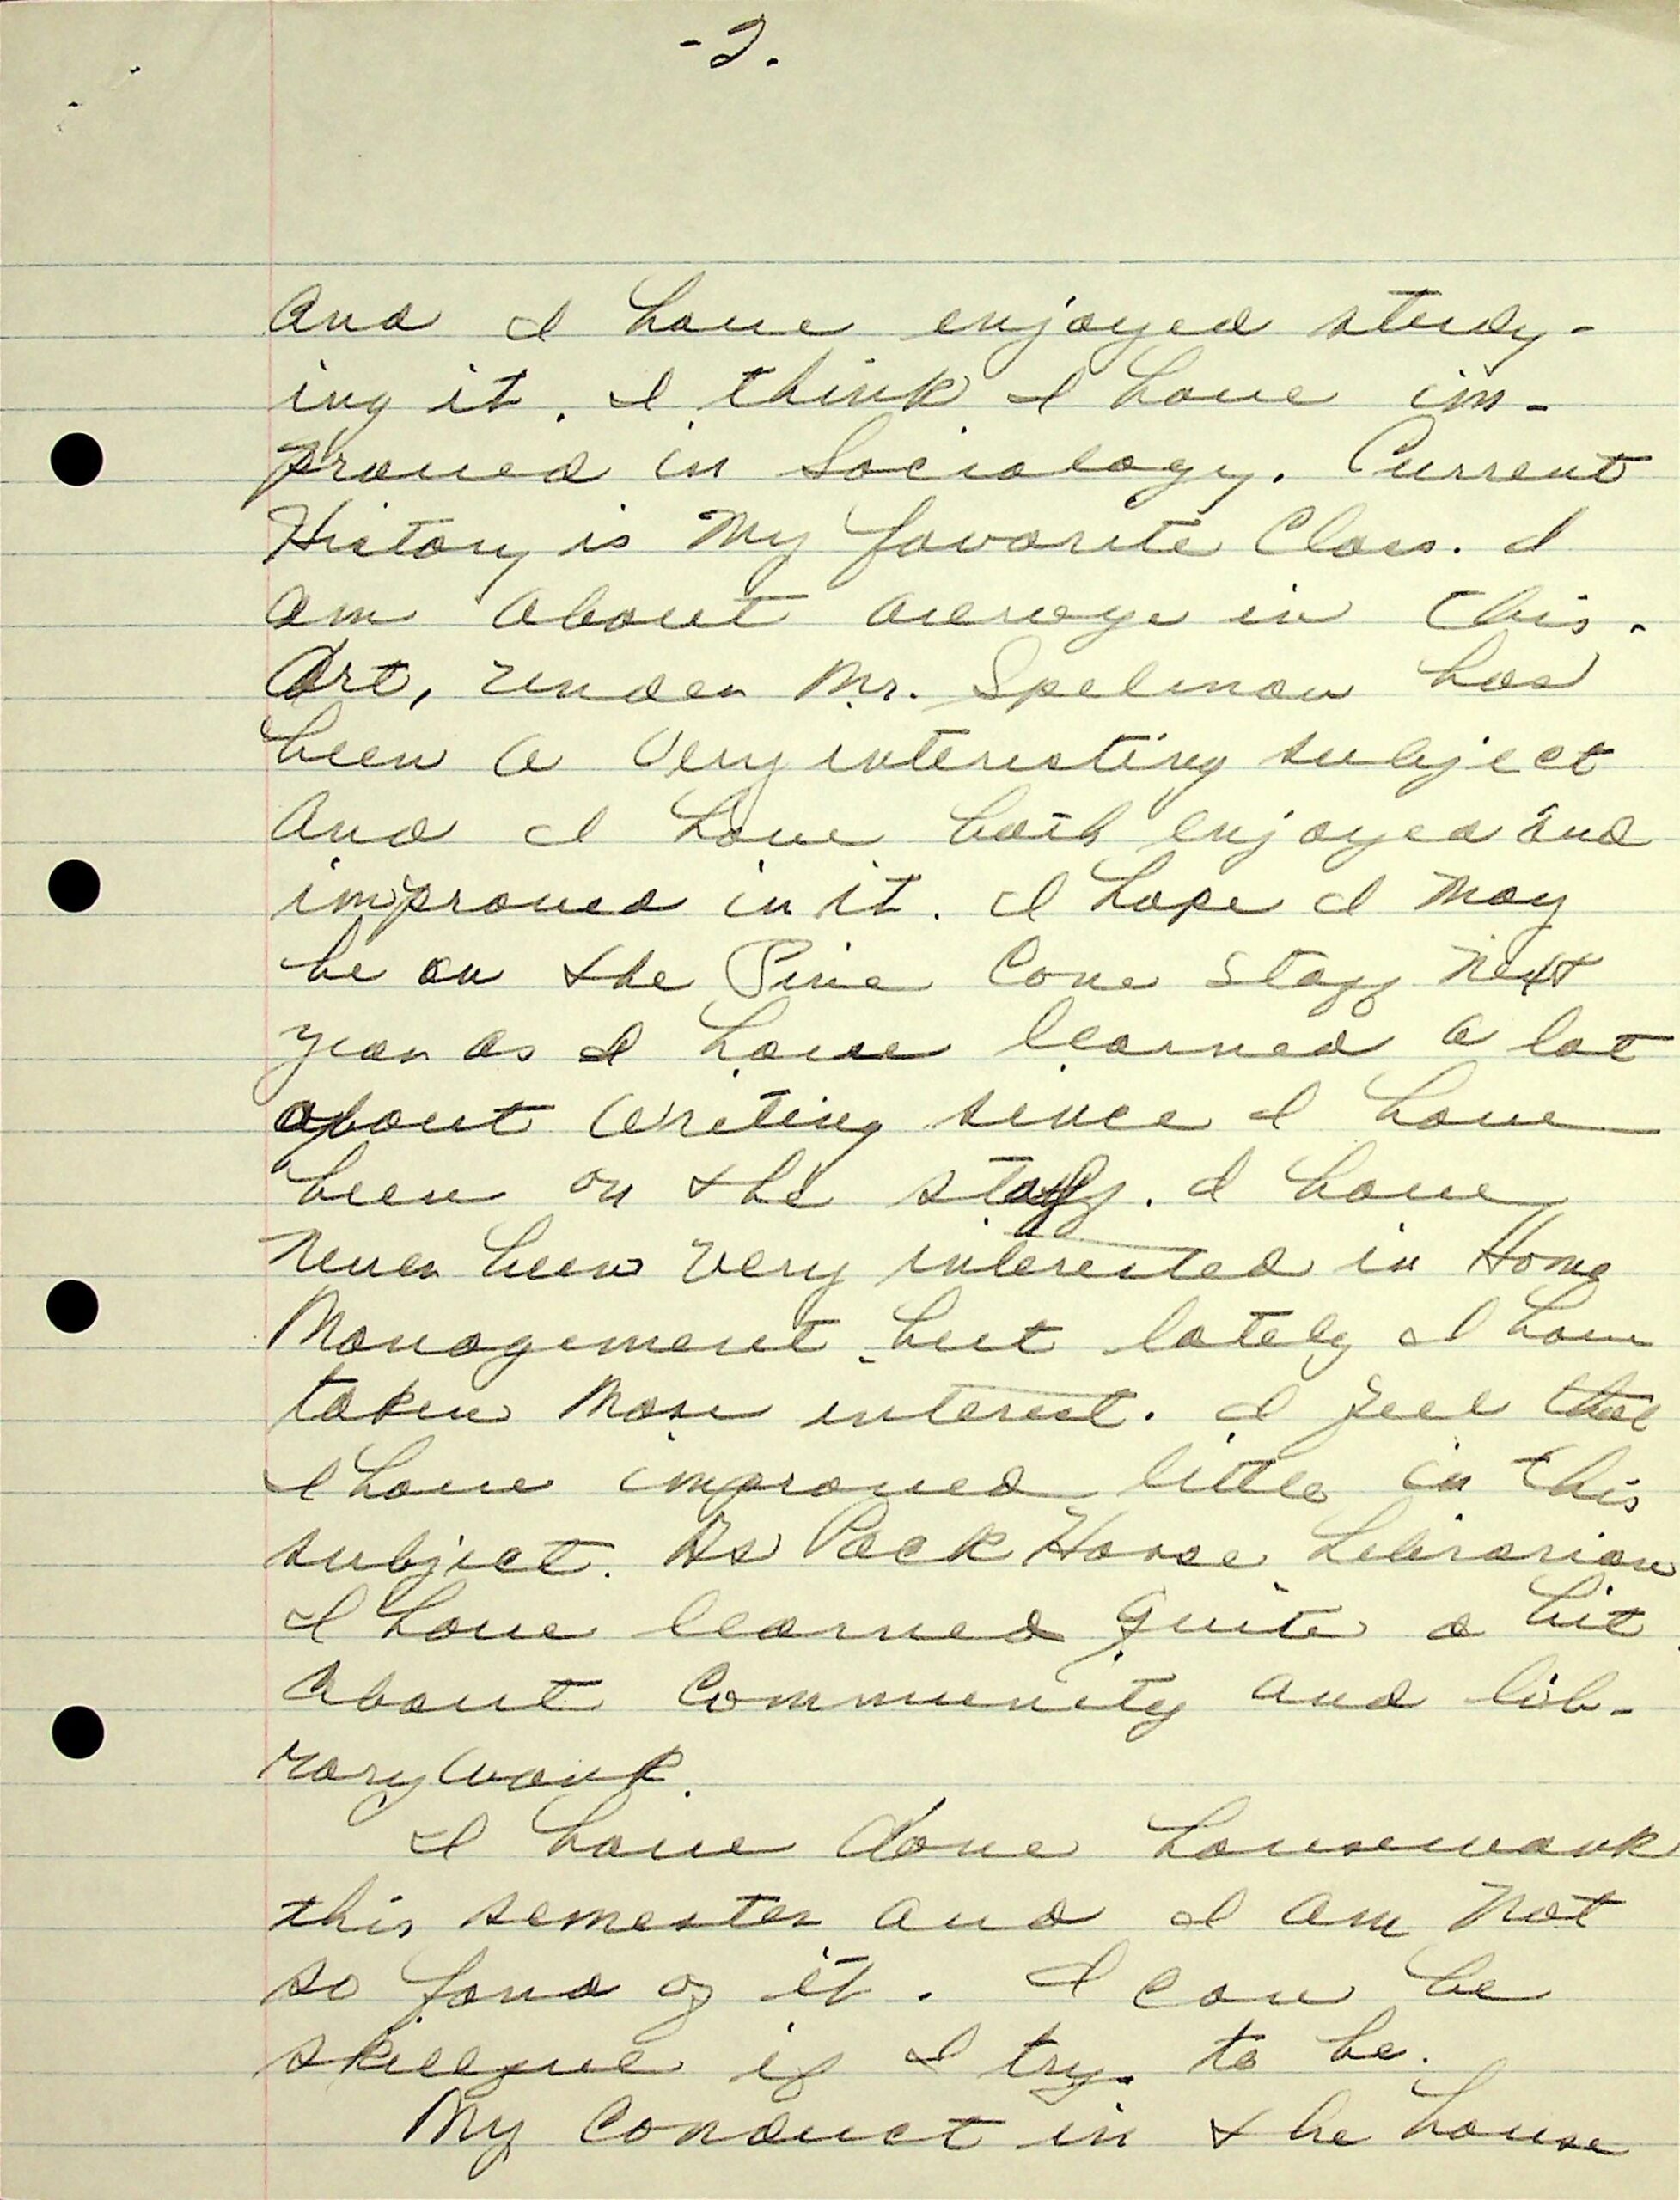 -2.
And I have enjoyed study-
ing it. I think I have im-
proved in Sociology. Current
History is my favorite Class. I
am about average in this.
Art, under Mr. Spelman has
been a very interesting subject
And I have both enjoyed and
improved in it. I hope I may
be on the Pine Cone staff next
year as I have learned a lot
about writing since I have
been on the staff. I have
never been very interested in Home
Management but lately I have
taken more interest. I feel that
I have improved little in this
subject. As Pack Horse Librarian
I have learned quite a bit
about Community and lib-
rary work.
I have done housework
this semester and I am not
so fond of it. I can be
skillful if I try to be.
My conduct in the house